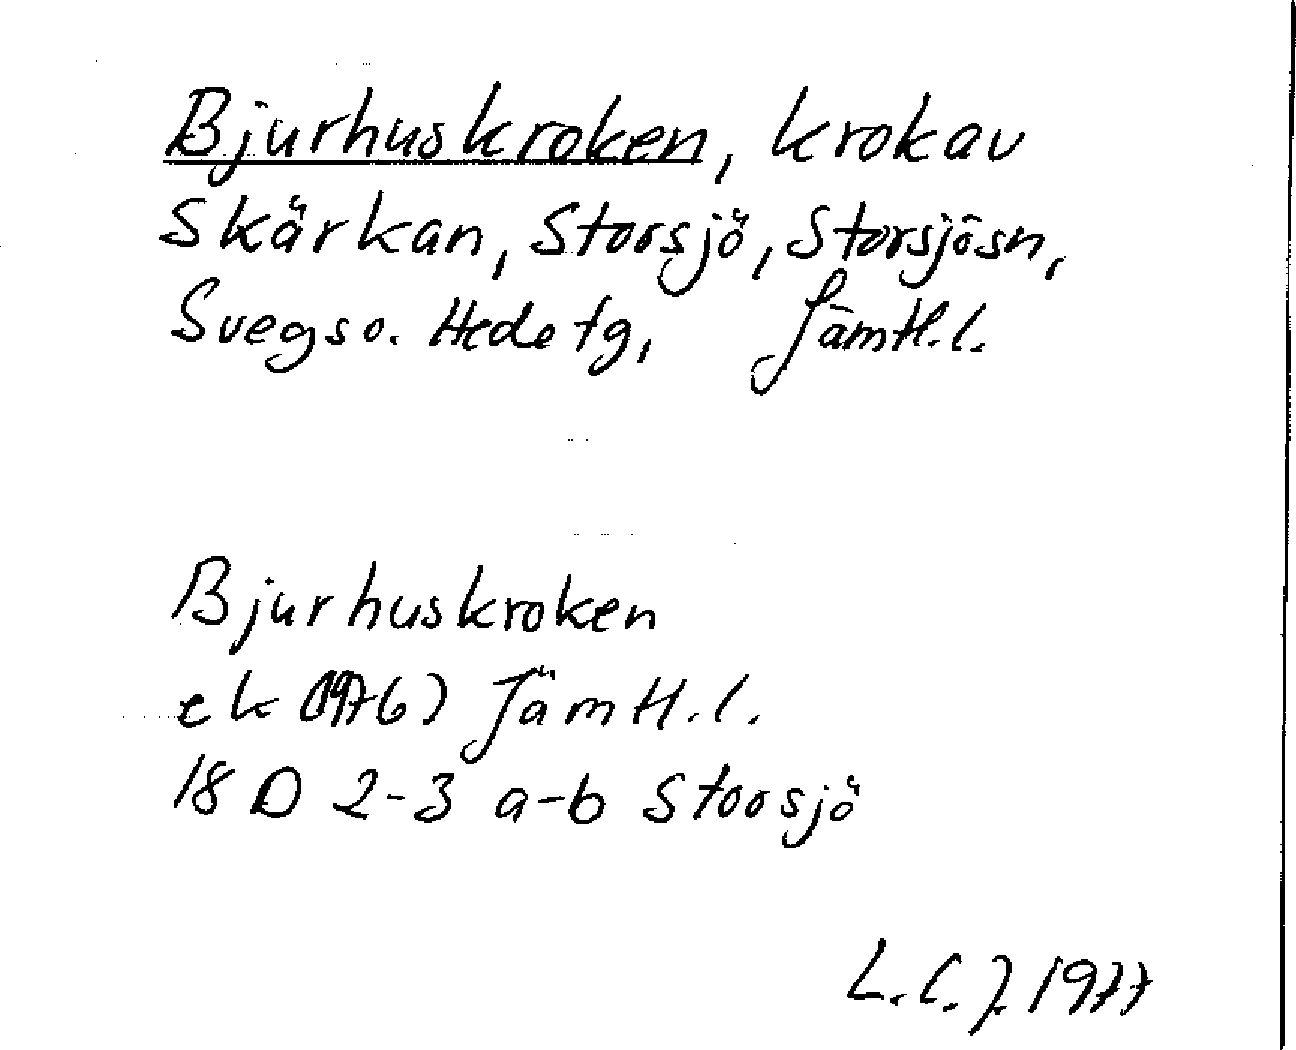 Bjurhuskroken, krok av
Skärkan, Storsjö, Storsjö sn,
Svegs o. Hede tg, Jämtl. l.
Bjurhuskroken
ek (1976) Jämtl. l.
18 D 2-3 a-b Storsjö
L.C.J. 1977